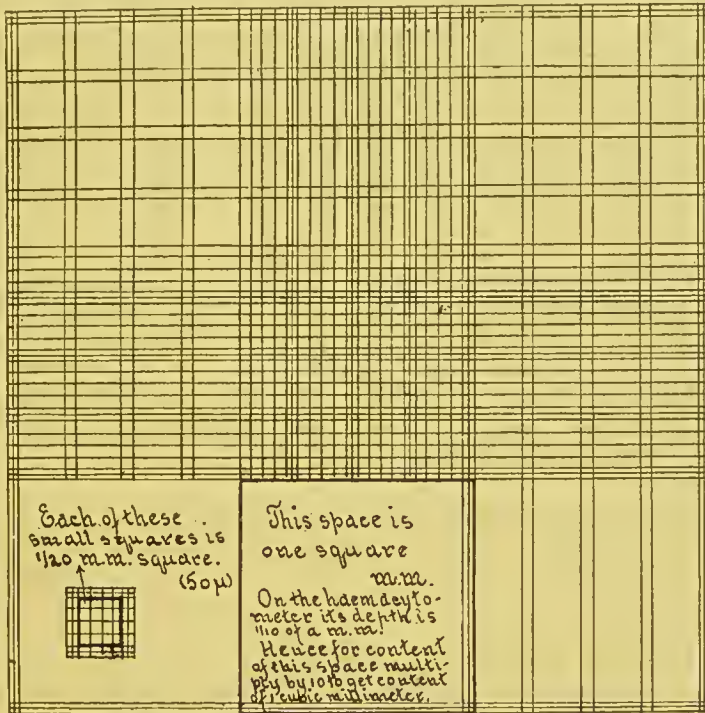 Each of these
small squares is
1/20 m.m. square.
(50µ)
This space is
one square
m.m.
On the haemacyto-
meter its depth is
1/10 of a m.m.
Hence for content
of this space multi-
ply by 10 to get content
of 1 cubic millimeter.